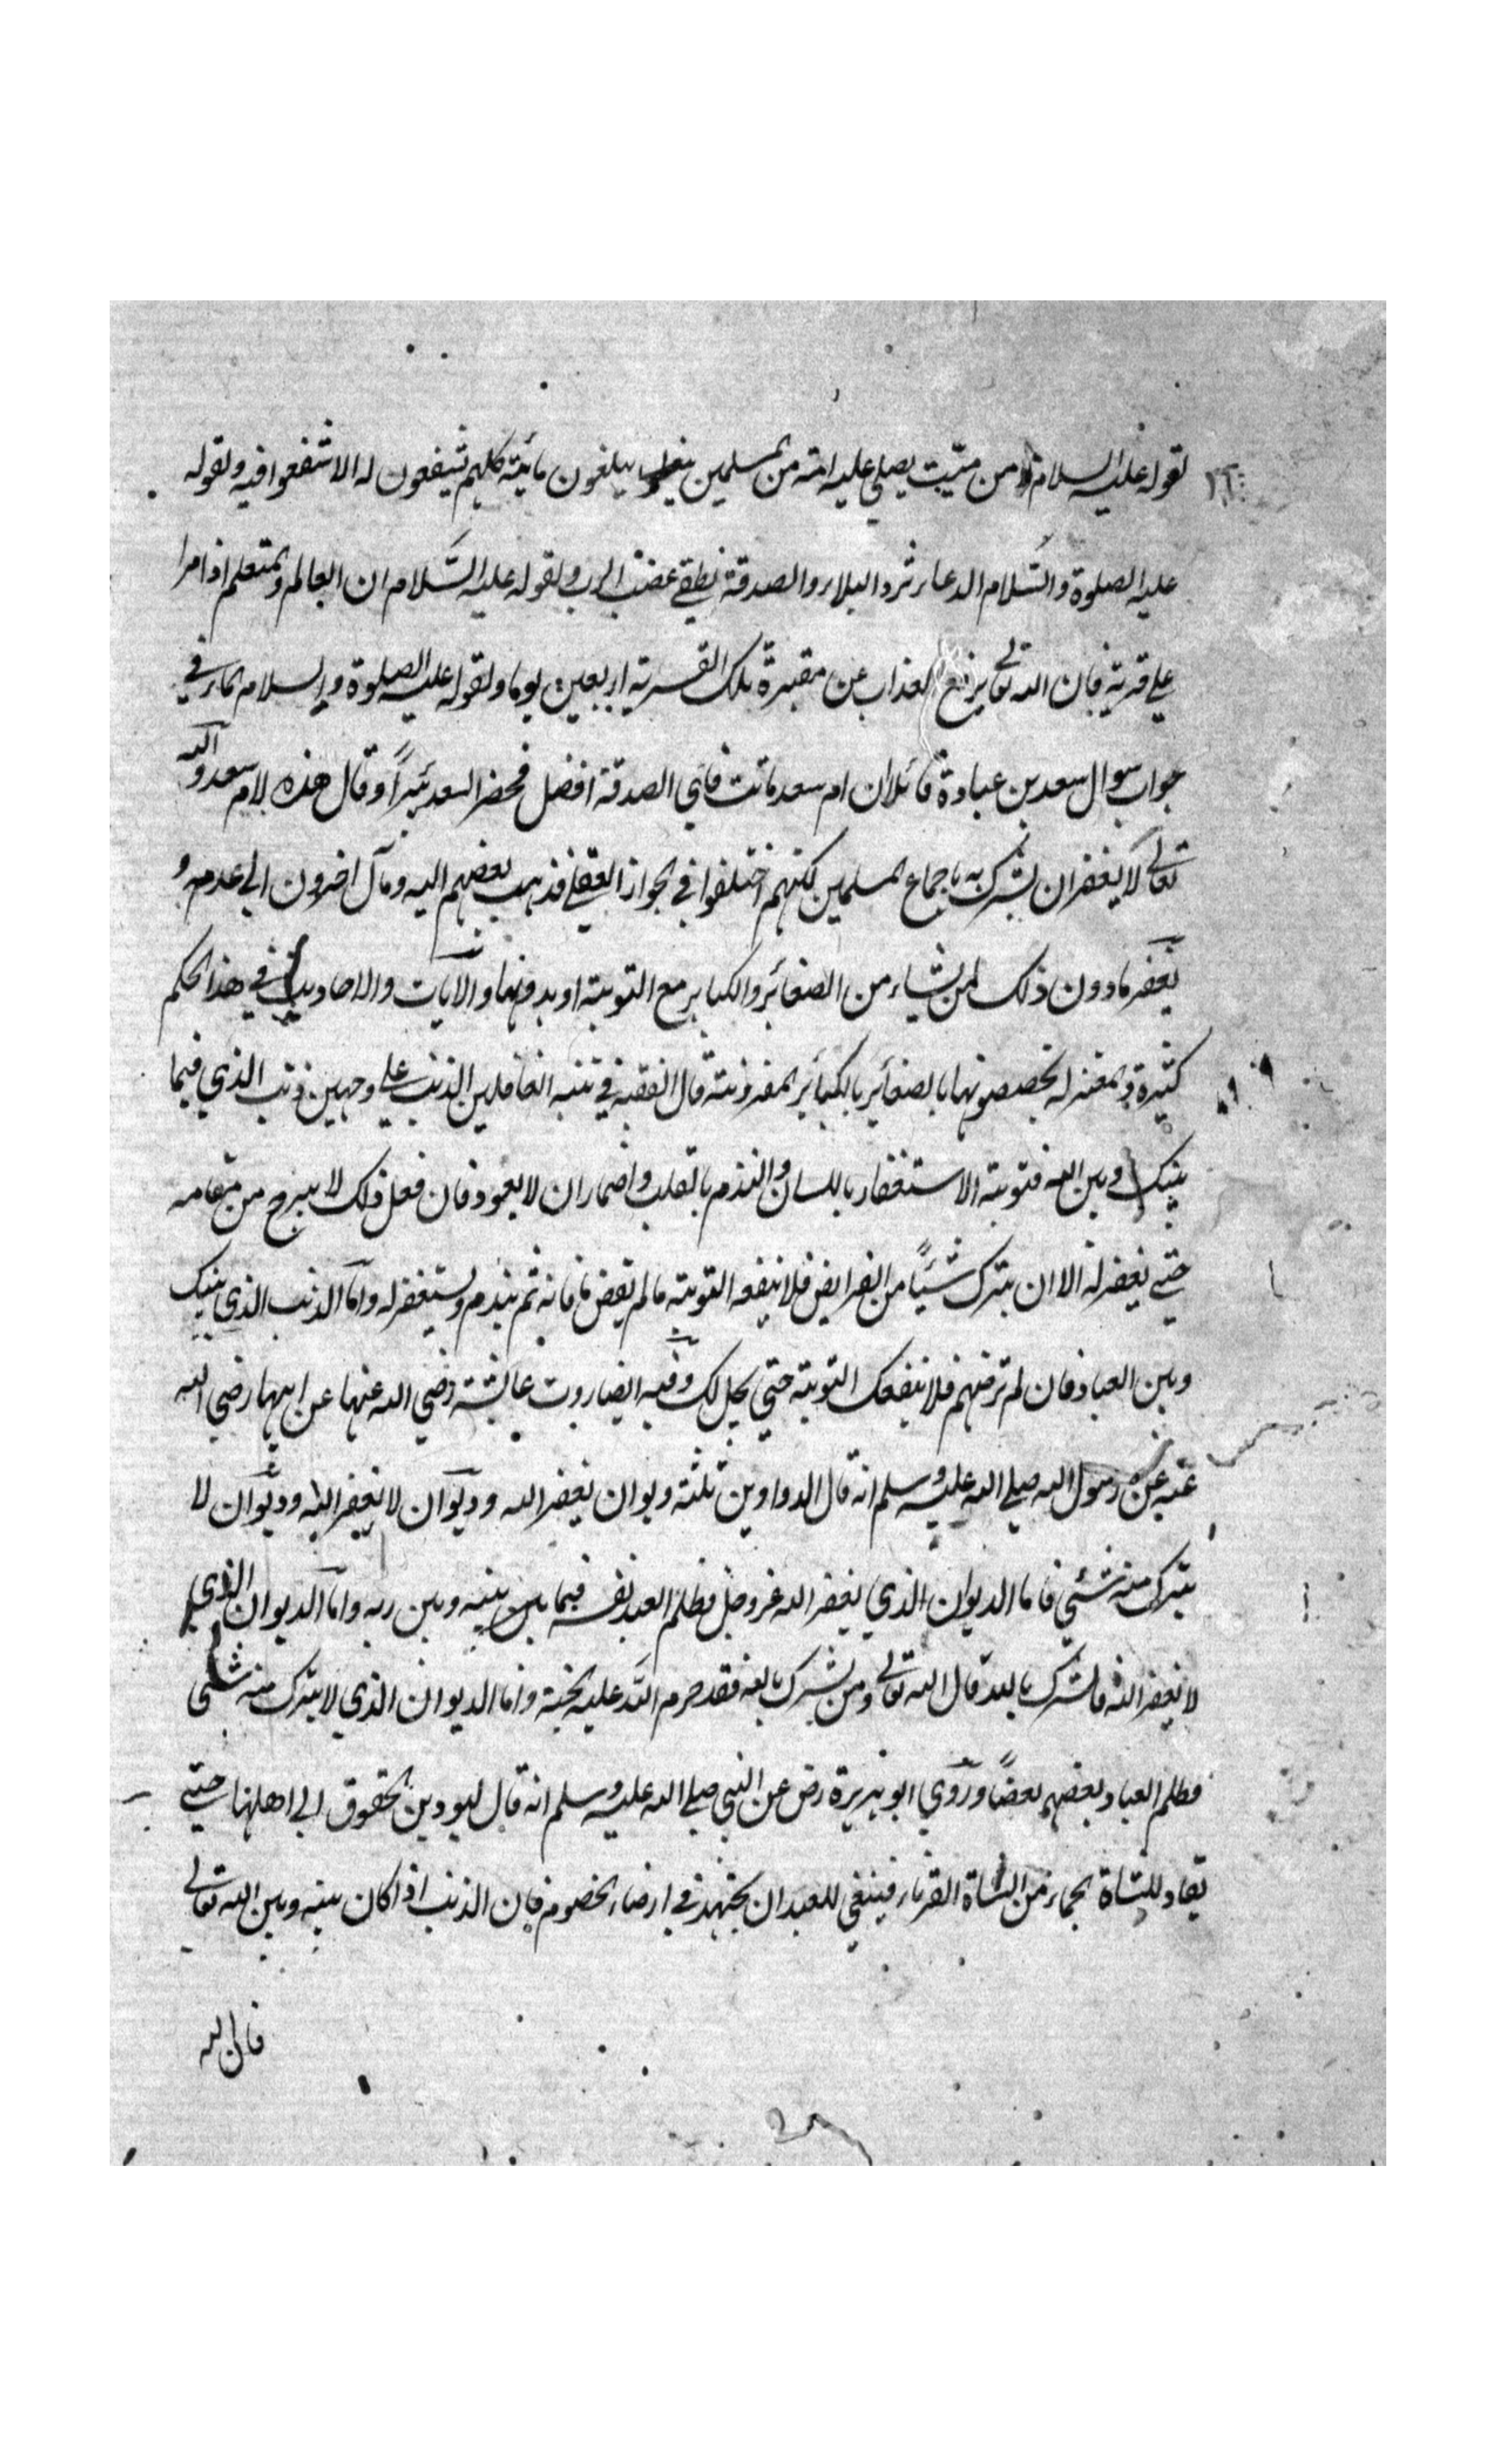 لقوله عليه السلام ما من ميّت يصلي عليه امة من المسلمين يبلغون مائة كلهم شيفعون له الا شفعوا فيه ولقوله
عليه الصلوة والسّلام الدعاء ترد البلاء والصدقة تطفي غضب الرب ولقوله عليه السّلام ان العالم والمتعلم اذا مرا
علي قرية فان الله تعالي يرفع العذاب عن مقبرة تلك القرية اربعين يوما ولقوله عليه الصلوة والسلام الماء في
جواب سوال سعد بن عبادة قائلا ان ام سعد ماتت فاي الصدقة افضل فحضر السعد بئيراً وقال هذه لام سعد والله
تعالي لا يغفر ان يشرك به باجماع المسلمين لكنهم اختلفوا في الجواز العقلي فذهب بعضهم اليه ومال اخرون الي عدمه و
يغفر مادون ذلك لمن يشاء من الصغائر والكبائر مع التوبة او بدونها والايات والاحاديث في هذا الحكم
كثيرة والمعتزلة يخصصونها بالصغائر بالكبائر المقرونة قال الفقيه في تنبه الغافلين الذنب علي وجهين ذنب الذي فيما
بينك وبين الله فتوبته الاستغفار باللسان والندم بالقلب واضماران لا يعود فان فعل ذلك لا يبرح من مقامه
حتي يغفر له الا ان يترك شيئاً من الفرايض فلا ينفعه التوبة ما لم يقض ما فاته ثم يندم ويستغفر له واما الذنب الذي بينك
وبين العباد فان لم ترضهم فلا ينفعك التوبة حتي يحل لك وفيه ايضا روت عائشة رضي الله عنها عن ابيها رضي الله
عنه عن رسول الله صلي الله عليه وسلم انه قال الدواوين ثلثة ديوان يغفر الله وديوان لا يغفر الله وديوان لا
يترك منه شئي فاما الديوان الذي يغفر الله عزوجل فظلم العبد نفسه فيما بين بينه وبين ربه واما الديوان الذي
لا يغفر الله فالشرك بالله قال الله تعالي ومن يشرك بالله فقد حرم الله عليه الجنة واما الديوان الذي لا يترك منه شئي
فظلم العباد بعضهم بعضاً وروي ابو هريرة رض عن النبي صلي الله عليه وسلم انه قال ليودين الحقوق الي اهلها حتي
يقاد للشاة الجماء من الشاة القرناء فينبغي للعبد ان يجتهد في ارضاء الخصوم فان الذنب اذا كان بينه وبين الله تعالي
فان الله